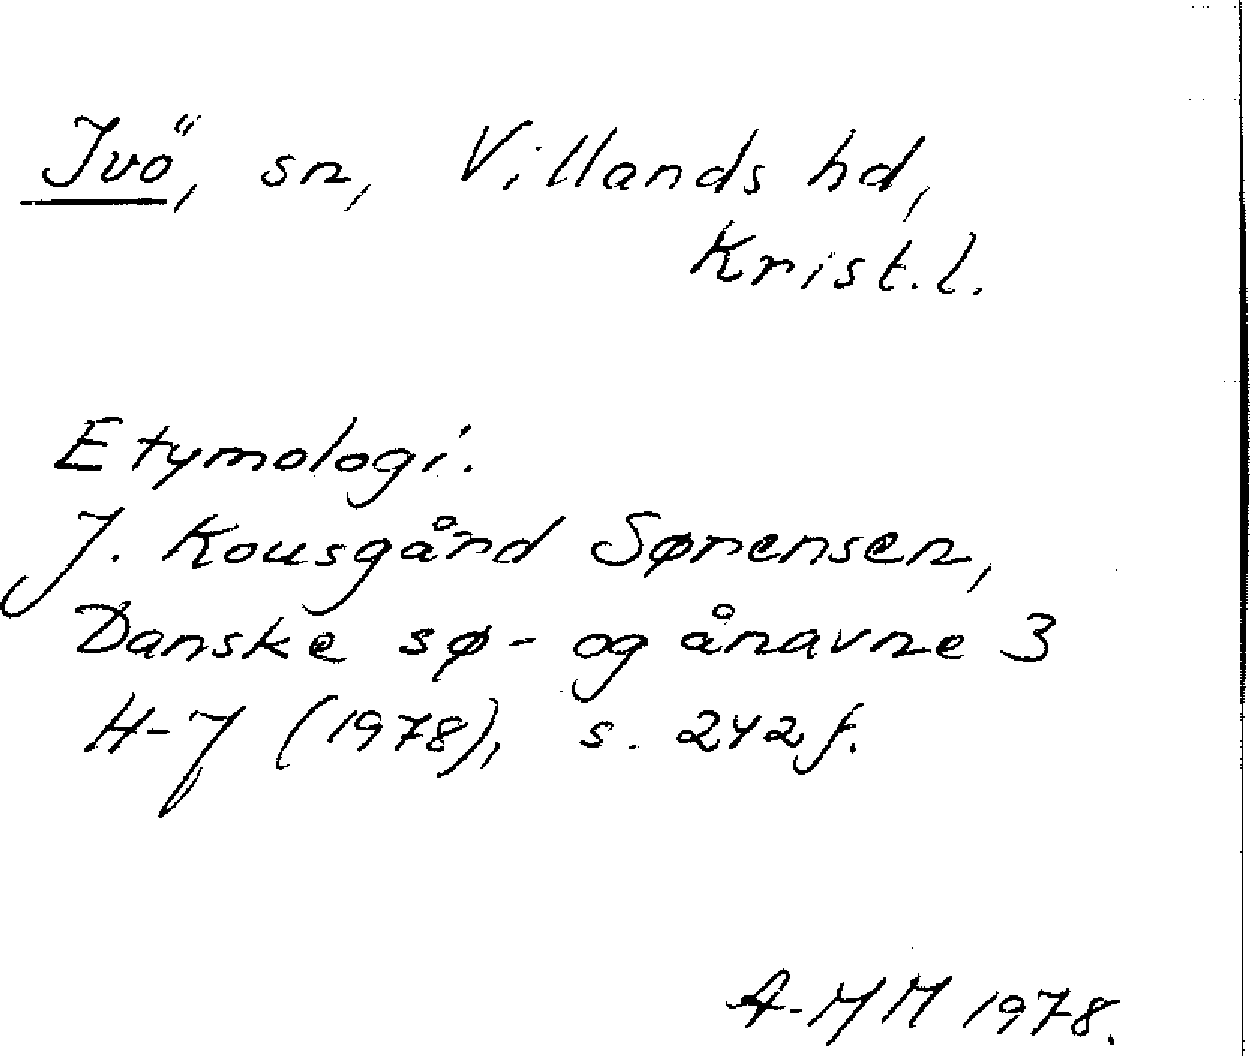 Ivö, sn, Villands hd,
Krist.l.
Etymologi.
J. Kousgård Sørensen,
Danske sø- og ånavne 3
H-J (1978), s. 242 f.
A-MM 1978.